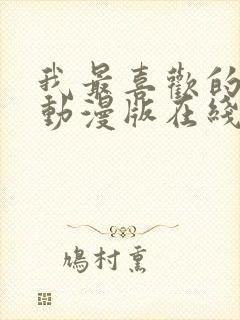 我最喜歡的
動漫版在綫
鳩村熏